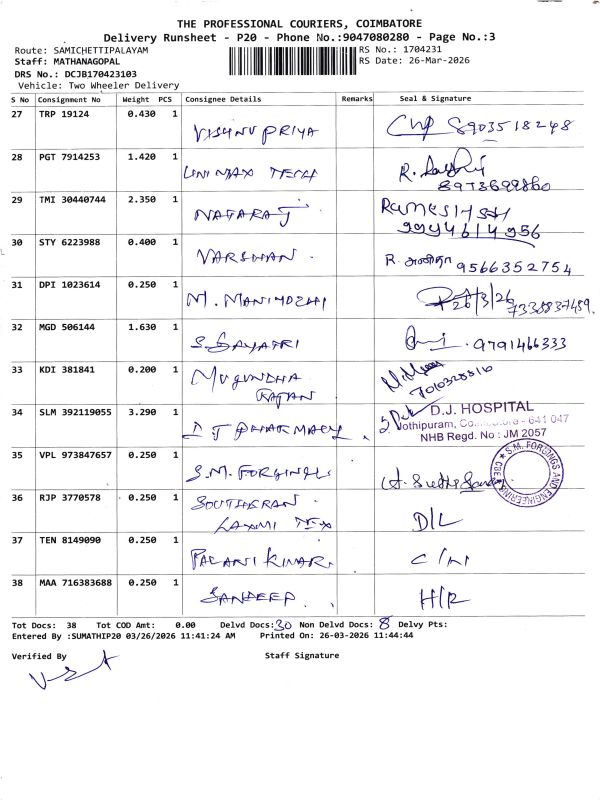 THE PROFESSIONAL COURIERS, COIMBATORE
Delivery Runsheet - P20 - Phone No.:9047080280 - Page No.:3
Route: SAMICHETTIPALAYAM RS No.: 1704231
Staff: MATHANAGOPAL RS Date: 26-Mar-2026
DRS No.: DCJB170423103
Vehicle: Two Wheeler Delivery
S No Consignment No Weight PCS Consignee Details Remarks Seal & Signature
27 TRP 19124 0.430 1 VISHNU PRIYA 8903518248
28 PGT 7914253 1.420 1 UNIMAX TECH 8973699860
29 TMI 30440744 2.350 1 NATARAJ
9994614956
30 STY 6223988 0.400 1 VARSHAN R. 9566352754
31 DPI 1023614 0.250 1 M. MANIMOZHI 26/3/26
7338837459.
32 MGD 506144 1.630 1 S. GAYATRI 9791466333
33 KDI 381841 0.200 1 MUGUNDHA
RAJAN 7010328816
34 SLM 392119055 3.290 1 DJ PHARMACY
D.J. HOSPITAL
Jothipuram, Coimbatore - 641 047
NHB Regd. No : JM 2057
35 VPL 973847657 0.250 1 S.M. FORGINGS
S.M. FORGINGS AND ENGINEERING ★ CBE
36 RJP 3770578 0.250 1 SOUTHERAN
LAXMI TEX D/L
37 TEN 8149090 0.250 1 PALANI KUMAR C/N
38 MAA 716383688 0.250 1 SANDEEP H/R
Tot Docs: 38 Tot COD Amt: 0.00 Delvd Docs: 30 Non Delvd Docs: 8 Delvy Pts:
Entered By :SUMATHIP20 03/26/2026 11:41:24 AM Printed On: 26-03-2026 11:44:44
Verified By Staff Signature